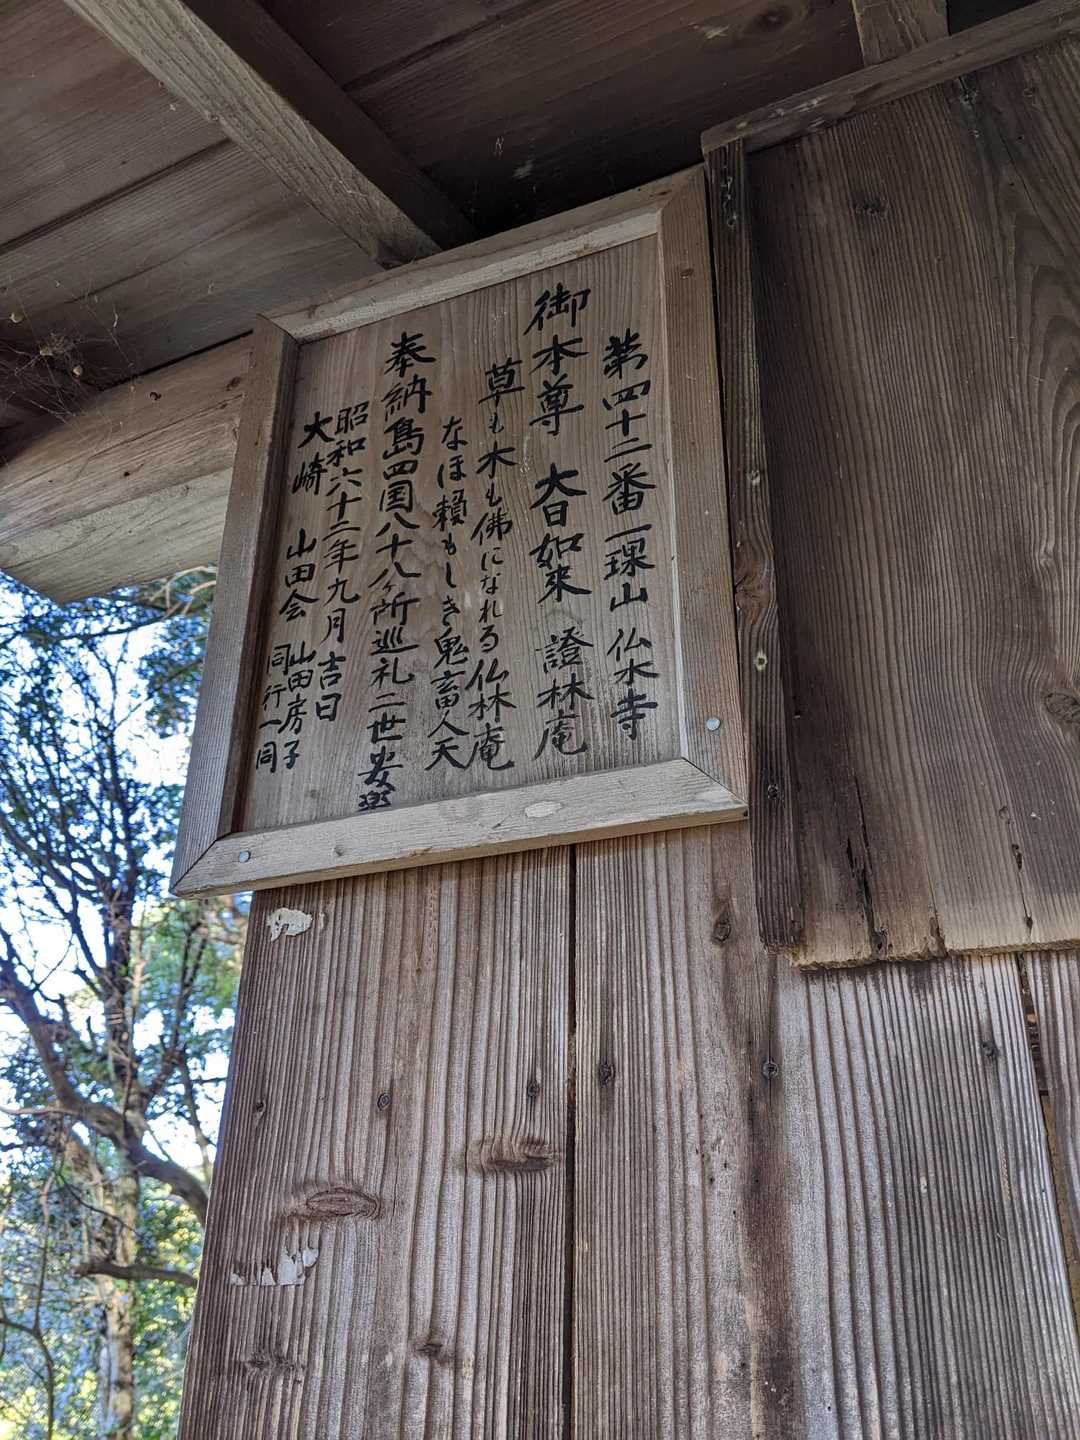 第四十二番一理山 仏木寺
御本尊 大日如来 證林庵
草も木も佛になれる仏林庵
なほ頼もしき鬼畜人天
奉納島四国八十八ヶ所巡礼二世安楽
昭和六十二年九月吉日
大崎 山田会 山田房子
同行一同